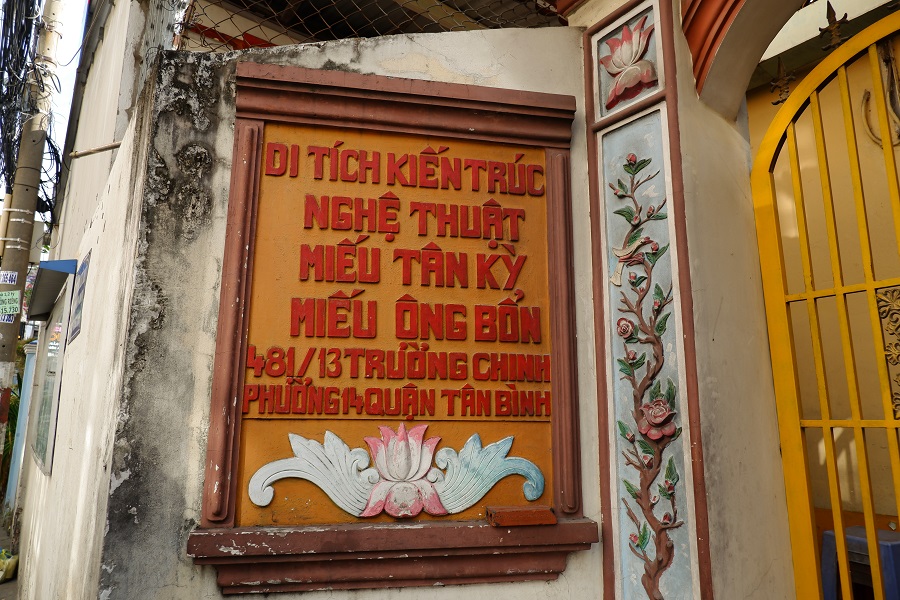 DI TÍCH KIẾN TRÚC
NGHỆ THUẬT
MIẾU TÂN KỲ
MIẾU ÔNG BỔN
481/13 TRƯỜNG CHINH
PHƯỜNG 14 QUẬN TÂN BÌNH